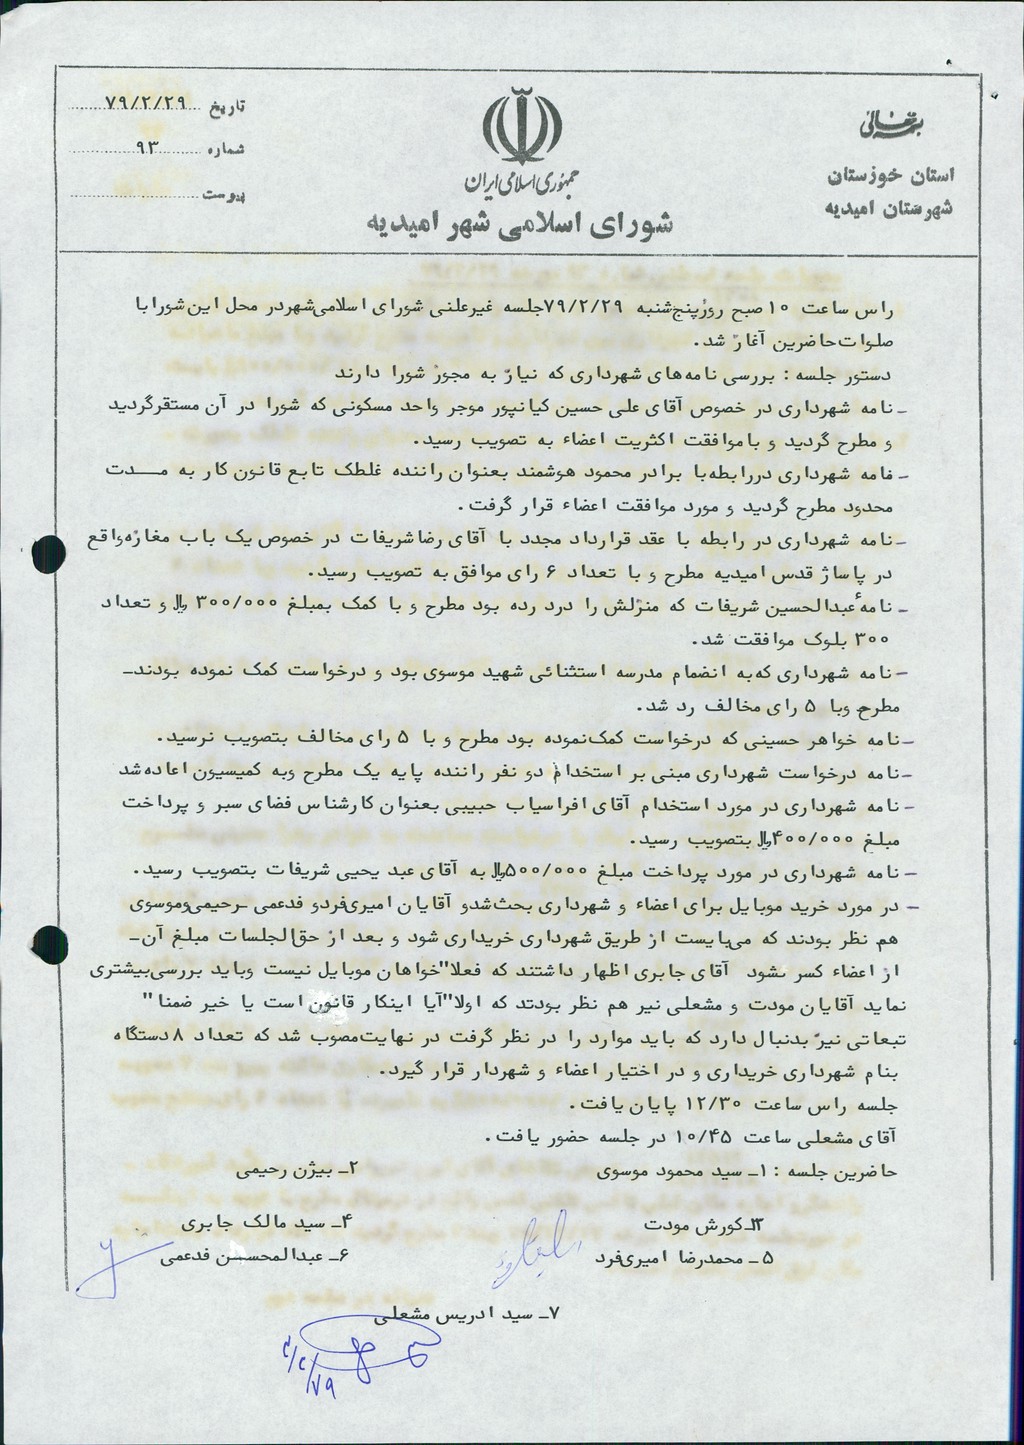 بسمه تعالی
استان خوزستان
شهرستان امیدیه
جمهوری اسلامی ایران
شورای اسلامی شهر امیدیه
تاریخ ۷۹/۲/۲۹
شماره ۹۳
پیوست
راس ساعت ۱۰ صبح روز پنج‌شنبه ۷۹/۲/۲۹ جلسه غیرعلنی شورای اسلامی شهر در محل این شورا با
صلوات حاضرین آغاز شد.
دستور جلسه : بررسی نامه‌های شهرداری که نیاز به مجوز شورا دارند
- نامه شهرداری در خصوص آقای علی حسین کیانپور موجر واحد مسکونی که شورا در آن مستقر گردید
و مطرح گردید و با موافقت اکثریت اعضاء به تصویب رسید.
- نامه شهرداری در رابطه با برادر محمود هوشمند بعنوان راننده غلطک تابع قانون کار به مدت
محدود مطرح گردید و مورد موافقت اعضاء قرار گرفت.
- نامه شهرداری در رابطه با عقد قرارداد مجدد با آقای رضا شریفات در خصوص یک باب مغازه واقع
در پاساژ قدس امیدیه مطرح و با تعداد ۶ رای موافق به تصویب رسید.
- نامهٔ عبدالحسین شریفات که منزلش را درد رده بود مطرح و با کمک بمبلغ ۳۰۰/۰۰۰ ریال و تعداد
۳۰۰ بلوک موافقت شد.
- نامه شهرداری که به انضمام مدرسه استثنائی شهید موسوی بود و درخواست کمک نموده بودند-
مطرح و با ۵ رای مخالف رد شد.
- نامه خواهر حسینی که درخواست کمک نموده بود مطرح و با ۵ رای مخالف بتصویب نرسید.
- نامه درخواست شهرداری مبنی بر استخدام دو نفر راننده پایه یک مطرح و به کمیسیون اعاده شد
- نامه شهرداری در مورد استخدام آقای افراسیاب حبیبی بعنوان کارشناس فضای سبر و پرداخت
مبلغ ۴۰۰/۰۰۰ ریال بتصویب رسید.
- نامه شهرداری در مورد پرداخت مبلغ ۵۰۰/۰۰۰ ریال به آقای عبد یحیی شریفات بتصویب رسید.
- در مورد خرید موبایل برای اعضاء و شهرداری بحث شد و آقایان امیری‌فرد و فدعمی - رحیمی و موسوی
هم نظر بودند که می‌بایست از طریق شهرداری خریداری شود و بعد از حق الجلسات مبلغ آن-
از اعضاء کسر نشود آقای جابری اظهار داشتند که فعلا" خواهان موبایل نیست و باید بررسی بیشتری
نماید آقایان مودت و مشعلی نیر هم نظر بودند که اولا" آیا اینکار قانون است یا خیر ضمنا"
تبعاتی نیز بدنبال دارد که باید موارد را در نظر گرفت در نهایت مصوب شد که تعداد ۸ دستگاه
بنام شهرداری خریداری و در اختیار اعضاء و شهردار قرار گیرد.
جلسه راس ساعت ۱۲/۳۰ پایان یافت.
آقای مشعلی ساعت ۱۰/۴۵ در جلسه حضور یافت.
حاضرین جلسه : ۱- سید محمود موسوی ۲- بیژن رحیمی
۳- کورش مودت ۴- سید مالک جابری
۵- محمدرضا امیری‌فرد ۶- عبدالمحسن فدعمی
۷- سید ادریس مشعلی